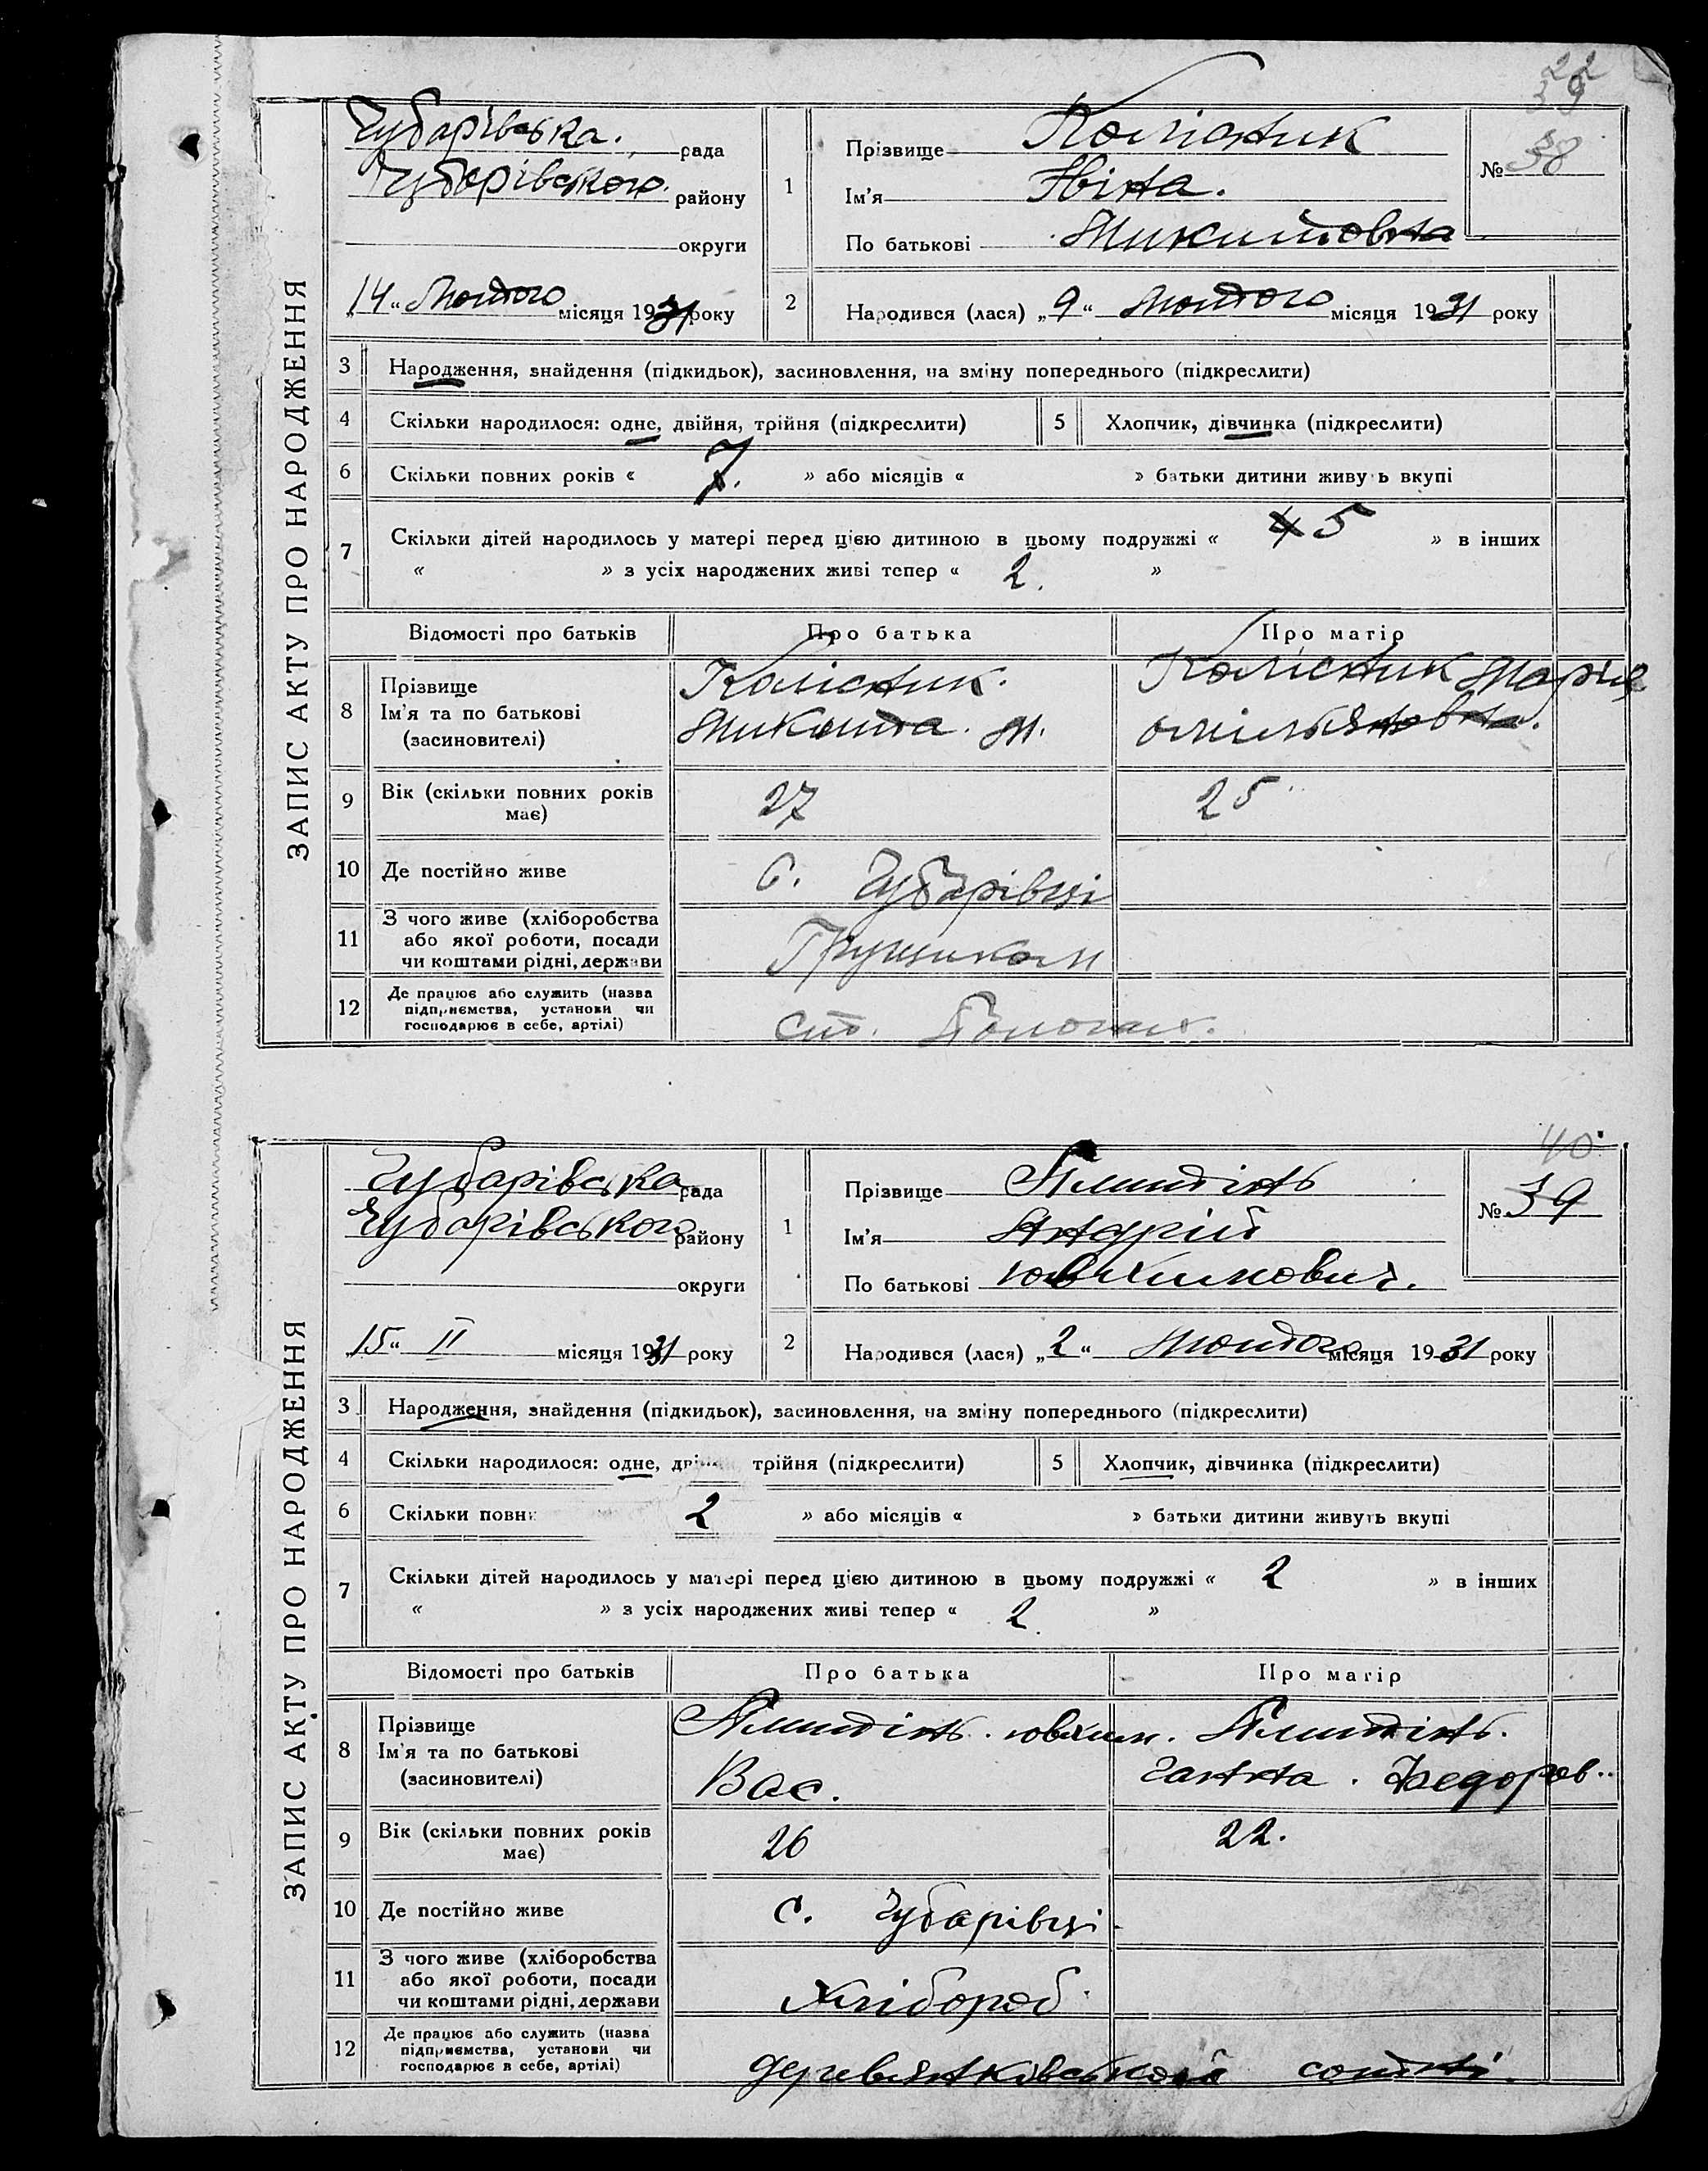 22
39
ЗАПИС АКТУ ПРО НАРОДЖЕННЯ
Чубарівська рада
Чубарівського району
округи
„14“ Лютого місяця 1931 року
1
Прізвище Колісник
Ім'я Ніна.
По батькові Микитовна
№ 38
2
Народився (лася) „9“ Лютого місяця 1931 року
3 Народження, знайдення (підкидьок), засиновлення, на зміну попереднього (підкреслити)
4 Скільки народилося: одне, двійня, трійня (підкреслити) 5 Хлопчик, дівчинка (підкреслити)
6 Скільки повних років « 7. » або місяців « » батьки дитини живуть вкупі
7 Скільки дітей народилось у матері перед цією дитиною в цьому подружжі « 4 5 » в інших
« » з усіх народжених живі тепер « 2. »
Відомості про батьків Про батька Про матір
8 Прізвище Ім'я та по батькові (засиновителі)
Колісник. Микита. М.
Колісник Марія Омільяновна.
9 Вік (скільки повних років має) 27 25
10 Де постійно живе с. Чубарівці
11 З чого живе (хліборобства або якої роботи, посади чи коштами рідні, держави Грузчиком
12 Де працює або служить (назва підприємства, установи чи господарює в себе, артілі) ст. Пологах.
ЗАПИС АКТУ ПРО НАРОДЖЕННЯ
Чубарівська рада
Чубарівського району
округи
„15“ II місяця 1931 року
1
Прізвище
Ім'я Андрій
По батькові Ювхимович.
40
№ 39
2
Народився (лася) „2“ Лютого місяця 1931 року
3 Народження, знайдення (підкидьок), засиновлення, на зміну попереднього (підкреслити)
4 Скільки народилося: одне, двійня, трійня (підкреслити) 5 Хлопчик, дівчинка (підкреслити)
6 Скільки повн 2 » або місяців « » батьки дитини живуть вкупі
7 Скільки дітей народилось у матері перед цією дитиною в цьому подружжі « 2 » в інших
« » з усіх народжених живі тепер « 2. »
Відомості про батьків Про батька Про матір
8 Прізвище Ім'я та по батькові (засиновителі)
Ювхим. Вас.
Ганна. Федоров..
9 Вік (скільки повних років має) 26 22.
10 Де постійно живе с. Чубарівці.
11 З чого живе (хліборобства або якої роботи, посади чи коштами рідні, держави Хлібороб.
12 Де працює або служить (назва підприємства, установи чи господарює в себе, артілі) сотні.